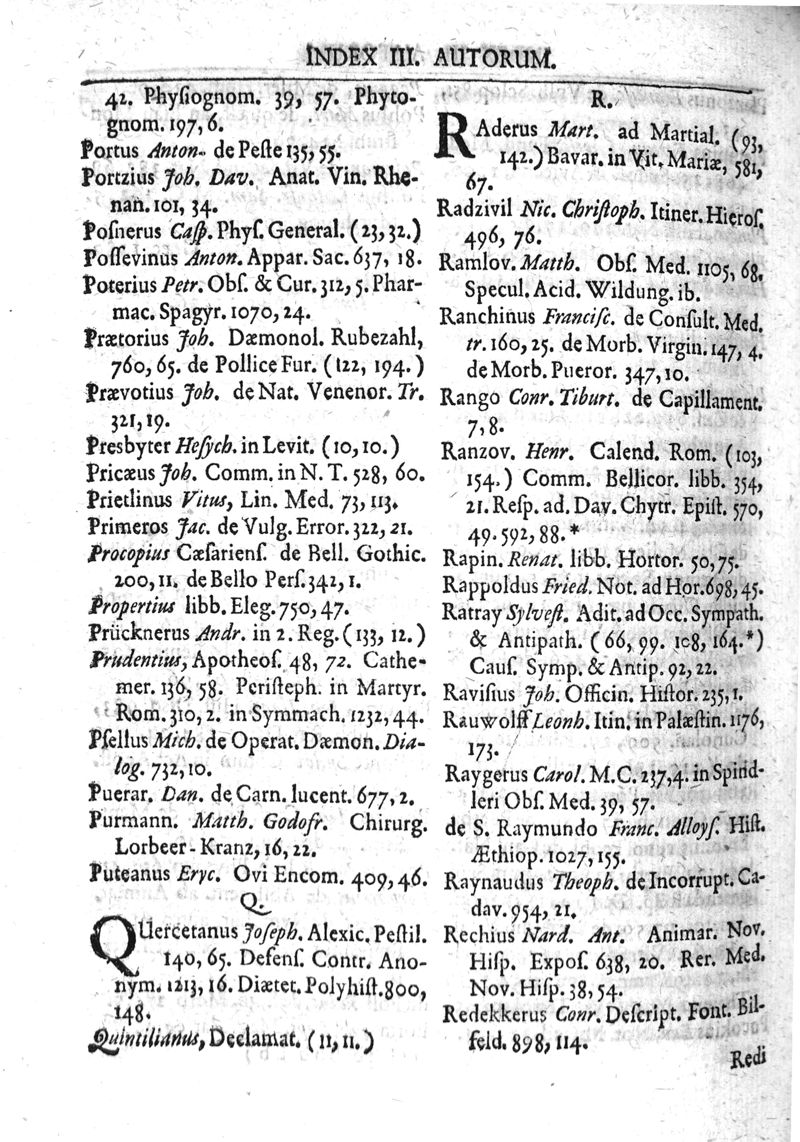 INDEX III. AUTORUM.
42. Phyſiognom. 39, 57. Phyto-
gnom. 197, 6.
Portus Anton. de Peſte 135, 55.
Portzius Joh. Dav. Anat. Vin. Rhe-
nan. 101, 34.
Poſnerus Caſp. Phyſ. General. (23, 32.)
Poſſevinus Anton. Appar. Sac. 637, 18.
Poterius Petr. Obſ. & Cur. 312, 5. Phar-
mac. Spagyr. 1070, 24.
Prætorius Joh. Dæmonol. Rubezahl,
760, 65. de Pollice Fur. (122, 194.)
Prævotius Joh. de Nat. Venenor. Tr.
321, 19.
Presbyter Heſych. in Levit. (10, 10.)
Pricæus Joh. Comm. in N. T. 528, 60.
Prietlinus Vitus, Lin. Med. 73, 113.
Primeros Jac. de Vulg. Error. 322, 21.
Procopius Cæſarienſ. de Bell. Gothic.
200, 11. de Bello Perſ. 342, 1.
Propertius libb. Eleg. 750, 47.
Prücknerus Andr. in 2. Reg. (133, 12.)
Prudentius, Apotheoſ. 48, 72. Cathe-
mer. 136, 58. Periſteph. in Martyr.
Rom. 310, 2. in Symmach. 1232, 44.
Pſellus Mich. de Operat. Dæmon. Dia-
log. 732, 10.
Puerar. Dan. de Carn. lucent. 677, 2.
Purmann. Matth. Godofr. Chirurg.
Lorbeer-Kranz, 16, 22.
Puteanus Eryc. Ovi Encom. 409, 46.
Q.
QUercetanus Joſeph. Alexic. Peſtil.
140, 65. Defenſ. Contr. Ano-
nym. 1213, 16. Diætet. Polyhiſt. 800,
148.
Quintilianus, Declamat. (11, 11.)
R.
RAderus Mart. ad Martial. (93,
142.) Bavar. in Vit. Mariæ, 581,
67.
Radzivil Nic. Chriſtoph. Itiner. Hieroſ.
496, 76.
Ramlov. Matth. Obſ. Med. 1105, 68.
Specul. Acid. Wildung. ib.
Ranchinus Franciſc. de Conſult. Med.
tr. 160, 25. de Morb. Virgin. 147, 4.
de Morb. Pueror. 347, 10.
Rango Conr. Tiburt. de Capillament.
7, 8.
Ranzov. Henr. Calend. Rom. (103,
154.) Comm. Bellicor. libb. 354,
21. Reſp. ad. Dav. Chytr. Epiſt. 570,
49. 592, 88.*
Rapin. Renat. libb. Hortor. 50, 75.
Rappoldus Fried. Not. ad Hor. 698, 45.
Ratray Sylveſt. Adit. ad Occ. Sympath.
& Antipath. (66, 99. 108, 164.*)
Cauſ. Symp. & Antip. 92, 22.
Raviſius Joh. Officin. Hiſtor. 235, 1.
Rauwolff Leonh. Itin. in Palæſtin. 1176,
173.
Raygerus Carol. M. C. 237, 4. in Spind-
leri Obſ. Med. 39, 57.
de S. Raymundo Franc. Alloyſ. Hiſt.
Æthiop. 1027, 155.
Raynaudus Theoph. de Incorrupt. Ca-
dav. 954, 21.
Rechius Nard. Ant. Animar. Nov.
Hiſp. Expoſ. 638, 20. Rer. Med.
Nov. Hiſp. 38, 54.
Redekkerus Conr. Deſcript. Font. Bil-
feld. 898, 114.
Redi